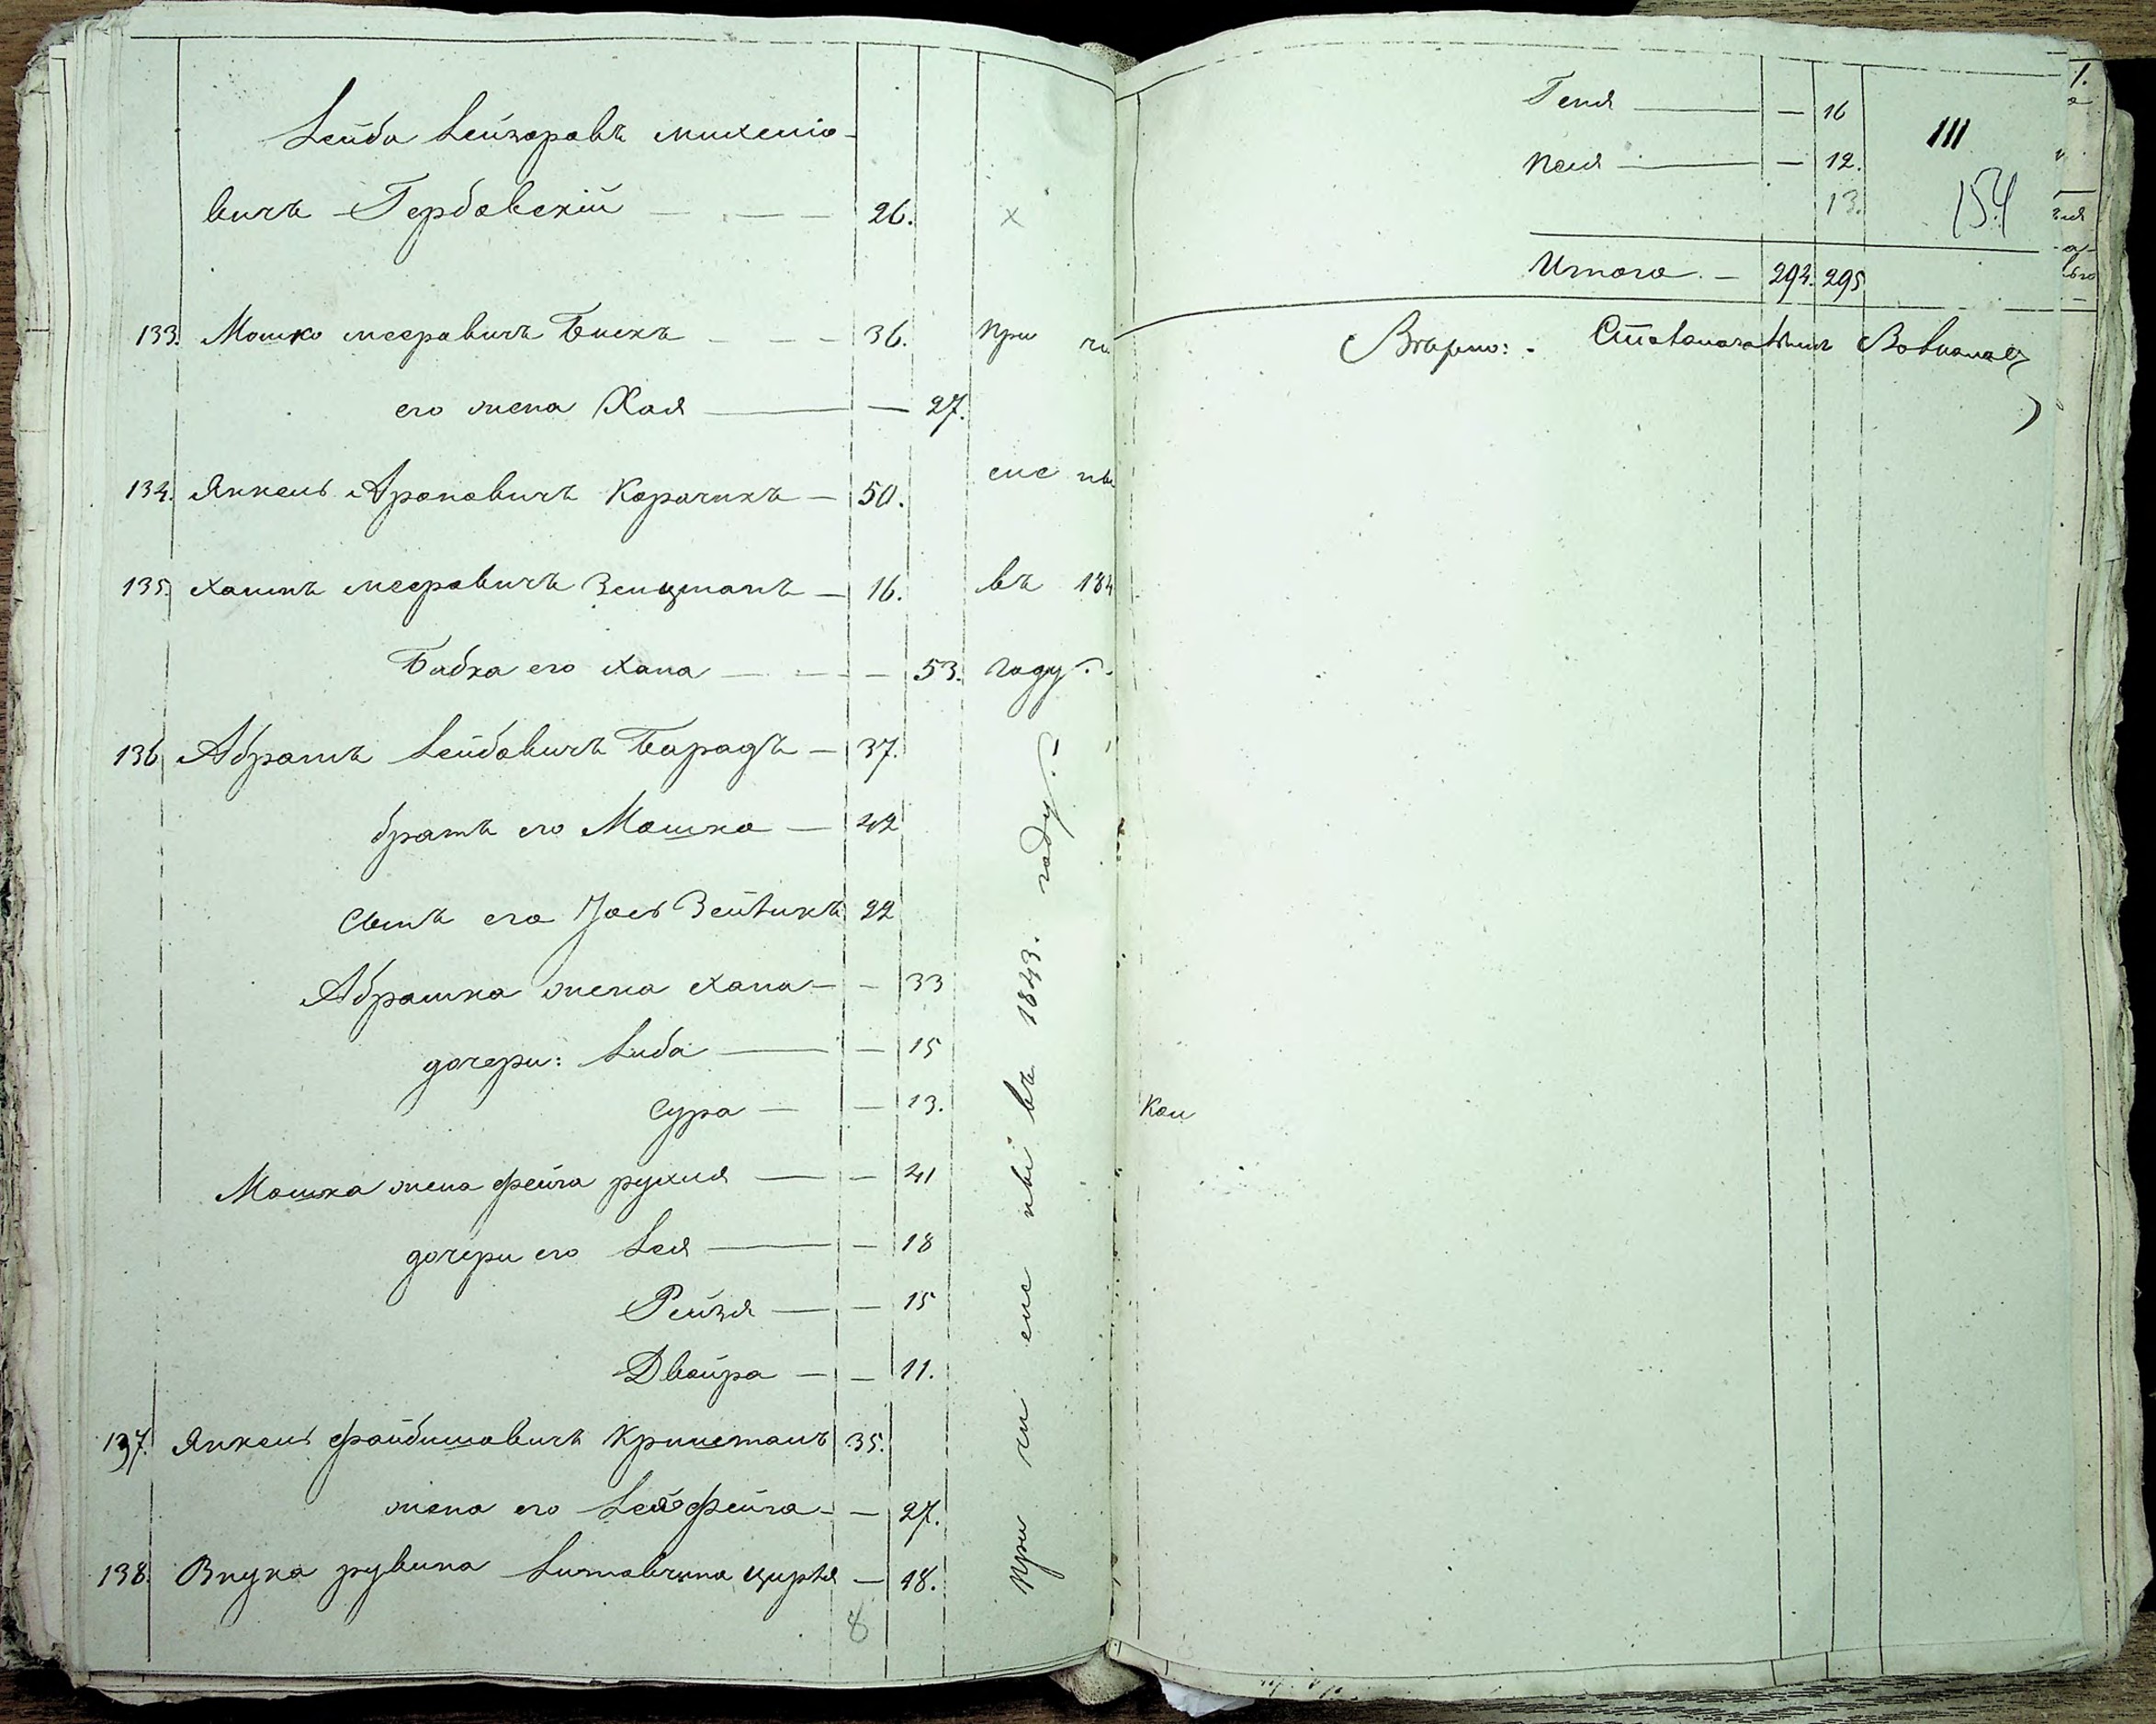 Лейба Лейзоровъ михелio-
вичъ Гербовскій — 26.
133. Мошко мееровичъ Бикъ — 36. При чи
его жена Хая — 27.
134. Янкель Ароновичъ Корочикъ — 50. сле ны
135. Хаимъ мееровичъ Зенцманъ — 16. въ 184
Бабка его Хана — 53. году.
136. Абрамъ Лейбовичъ Барадъ — 37.
братъ его Мошко — 42
Сынъ его Іось Зейликъ 22
Абрашка жена Хана — 33
дочери: Либа — 15
Сура — 13.
Мошка жена фейга рухля — 41
дочери его Лея — 18
Рейзя — 15
Двойра — 11.
137. Янкель файбишовичъ Криштанъ 35.
жена его Лея фейга — 27.
138. Внука рувина цирля — 18.
8
при чи сле ны въ 1843. году.
Геня — 16
Пеля — 12.
13.
111
154
Итого. — 294. 295
Вѣрно: Столоначальникъ
Кол